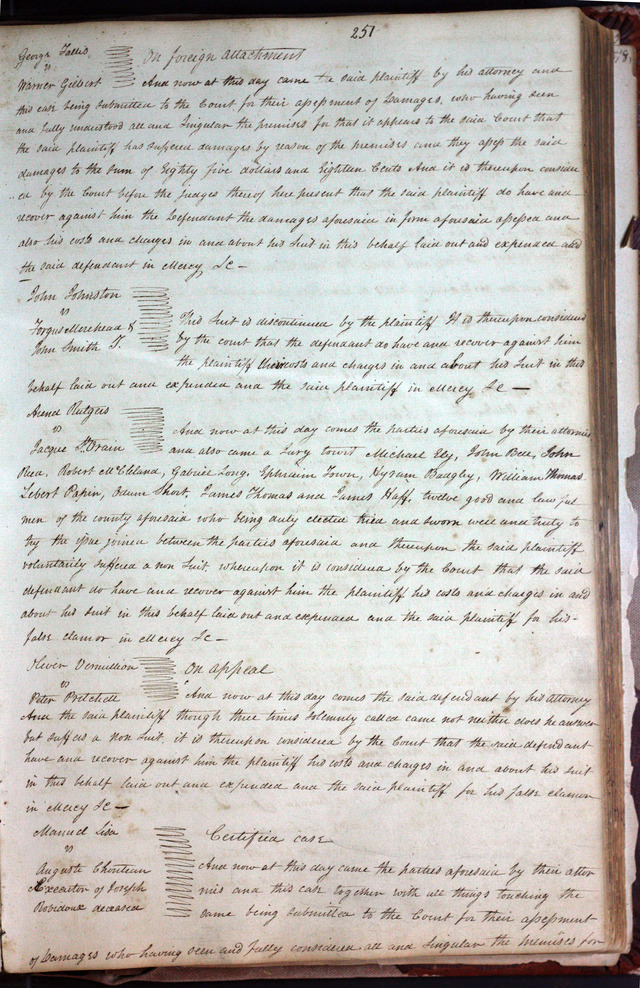 251
George Tallis
vs
Warner Gilbert
On foreign attachment
And now at this day came the said plaintiff by his attorney and
this case being submitted to the Court for their assessment of Damages, who having seen
and fully understood all and Singular the premises for that it appears to the said Court that
the said plaintiff has suffered damages by reason of the premises and they assess the said
damages to the sum of Eighty five dollars and Eighteen Cents And it is thereupon consider
ed by the Court before the judges thereof here present that the said plaintiff do have and
recover against him the Defendant the damages aforesaid in form aforesaid assessed and
also his costs and charges in and about his Suit in this behalf laid out and expended and
the said defendant in Mercy &c—
John Johnston
vs
Forgus Morehead &
John Smith T.
This Suit is discontinued by the plaintiff It is thereupon considered
by the court that the defendant do have and recover against him
the plaintiff their costs and charges in and about his Suit in this
behalf laid out and expended and the said plaintiff in Mercy &c—
Arend Rutgers
vs
Jacque St. Vrain
And now at this day comes the parties aforesaid by their attornies
and also came a Jury towit Michael Ely, John Bell, John
Rhea, Robert McCleland, Gabriel Long, Ephraim Town, Hyram Badgley, William Thomas
Lebert Papin, Adam Short, James Thomas and James Haff, twelve good and lawful
men of the county aforesaid who being duly elected tried and sworn well and truly to
try the issue joined between the parties aforesaid and thereupon the said plaintiff
voluntarily suffered a non Suit, whereupon it is considered by the Court that the said
defendant do have and recover against him the plaintiff his costs and charges in and
about his Suit in this behalf laid out and expended and the said plaintiff for his
false clamor in Mercy &c—
Oliver Vermillion
vs
Peter Pritchell
On appeal
And now at this day comes the said defendant by his attorney
And the said plaintiff though three times solemnly called came not neither does he answer
but suffers a Non Suit, it is thereupon considered by the Court that the said defendant
have and recover against him the plaintiff his costs and charges in and about his Suit
in this behalf laid out and expended and the said plaintiff for his false clamor
in Mercy &c—
Manuel Lisa
vs
Auguste Chouteau
Executor of Joseph
Robidoux deceased
Certified case
And now at this day came the parties aforesaid by their attor
nies and this case together with all things touching the
same being submitted to the Court for their assessment
of Damages who having seen and fully considered all and Singular the premises for